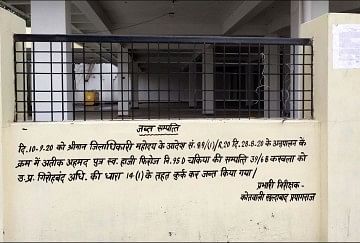 जब्त सम्पत्ति
दि. 10-9-20 को श्रीमान जिलाधिकारी महोदय के आदेश सं. 95/(1)/R.20 दि. 28-8-20 के अनुपालन के
क्रम में अतीक अहमद पुत्र स्व. हाजी फिरोज नि. 95 D चकिया की सम्पत्ति 39/6B काटवला को
उ.प्र. गिरोहबंद अधि. की धारा 14(1) के तहत कुर्क कर जब्त किया गया/
प्रभारी निरीक्षक-
कोतवाली खुल्दाबाद प्रयागराज